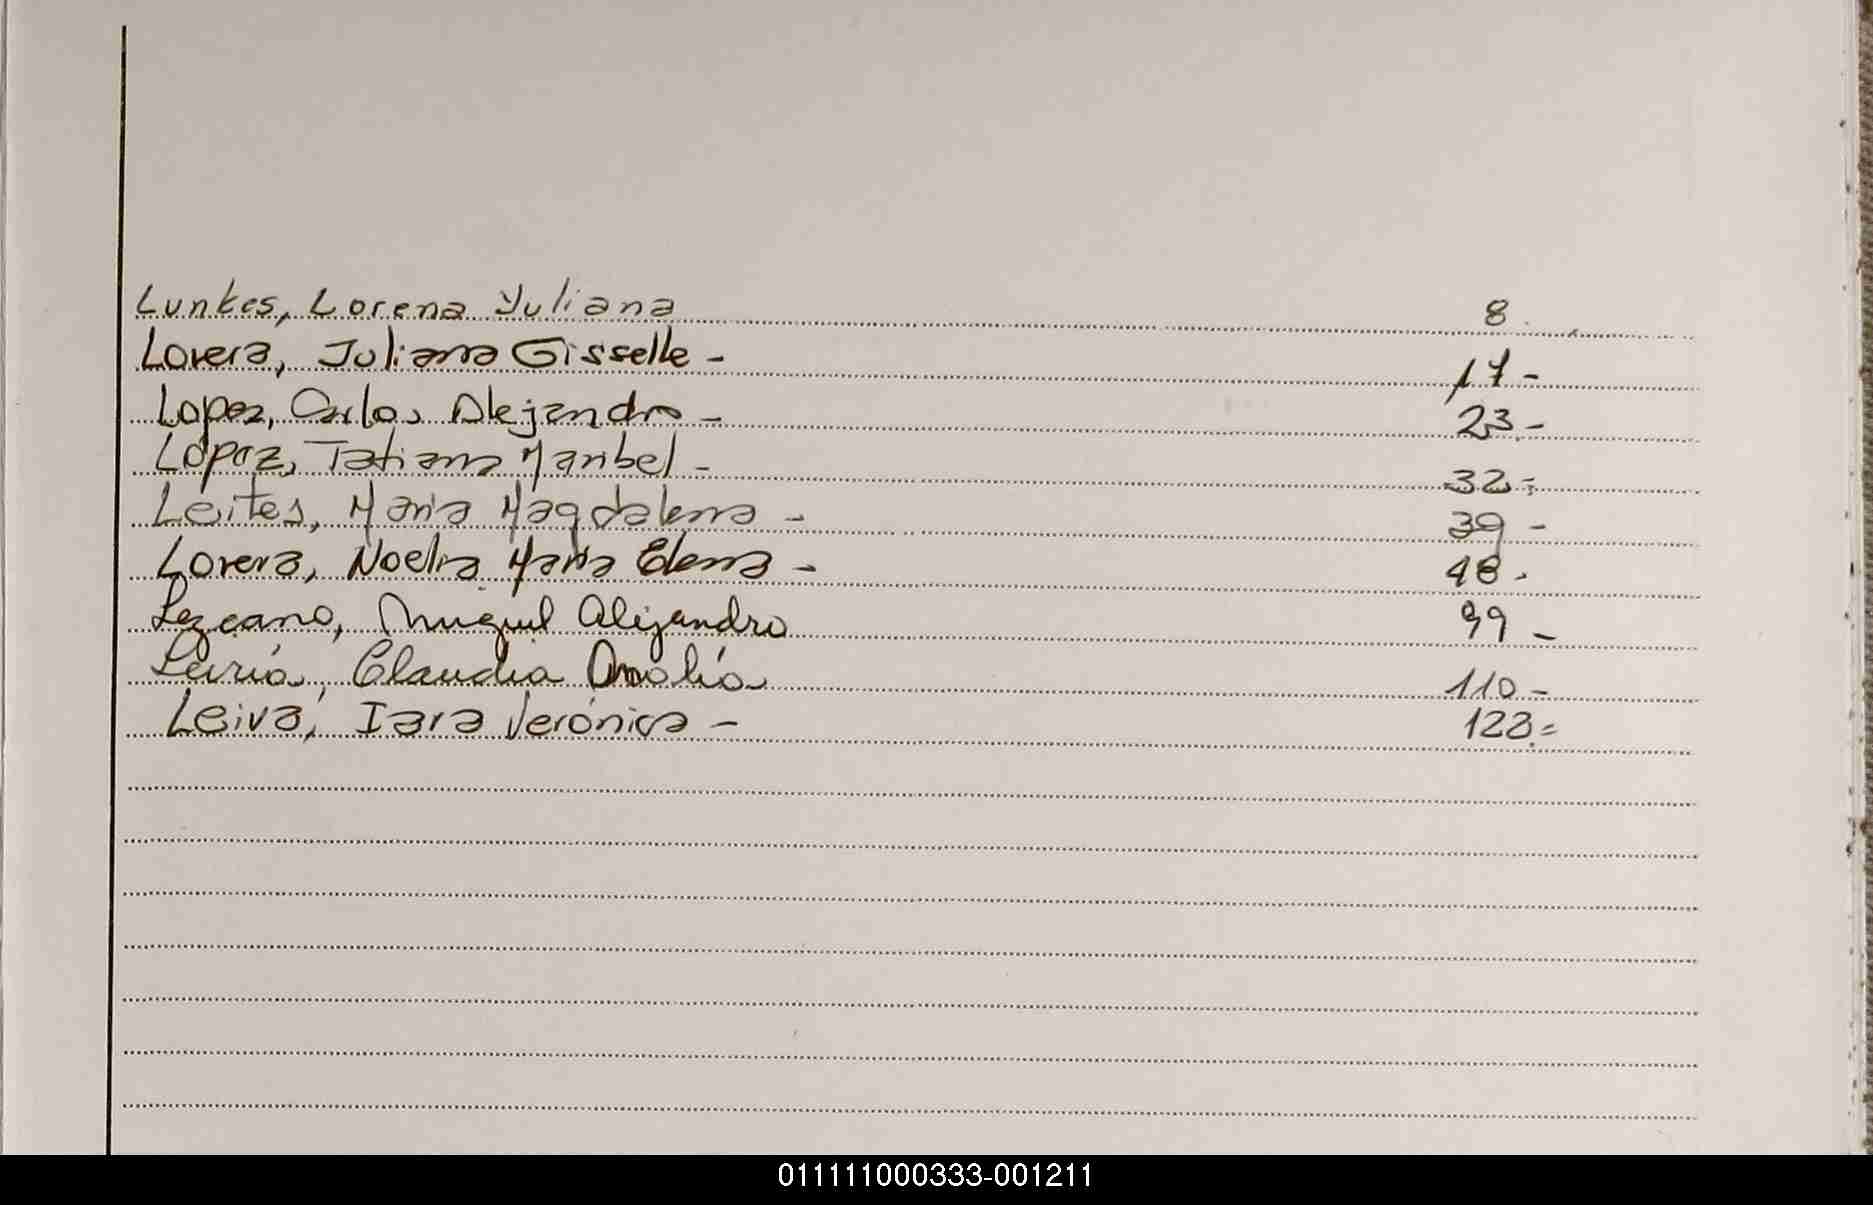 Lunkes, Lorena Yuliana 8
Lovera, Juliana Gisselle - 17 -
Lopez, Carlos Alejandro - 23 -
Lopez, Tatiana Maribel - 32 -
Leites, Maria Magdalena - 39 -
Lovera, Noelia Maria Elena - 48 -
Lezcano, Miguel Alejandro 99 -
Leiria, Claudia Analía 110 -
Leiva, Iara Verónica - 123 =
011111000333-001211